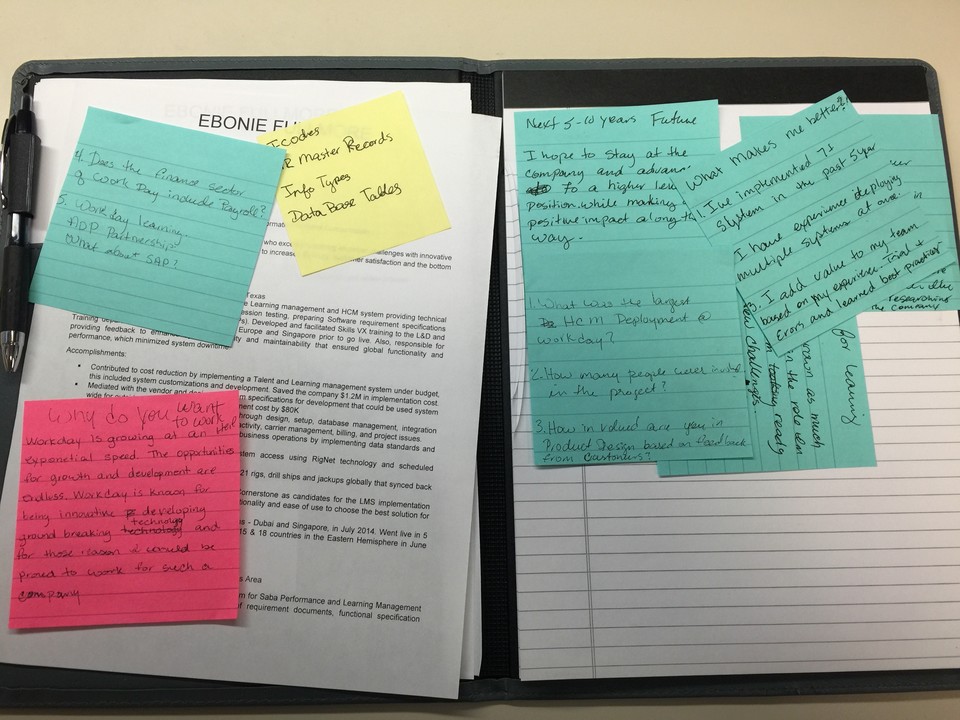 EBONIE
4. Does the finance sector
of Work Day include Payroll?
5. Workday learning.
ADP Partnership
What about SAP?
Icodes
Master Records
Info Types
Data Base Tables
who
challenges with innovative
to increase
satisfaction and the bottom
Texas
Learning management and HCM system providing technical
session testing, preparing Software requirement specifications
Developed and facilitated Skills VX training to the L&D and
Training
providing feedback to
Europe and Singapore prior to go live. Also, responsible for
performance, which minimized system
and maintainability that ensured global functionality and
Accomplishments:
• Contributed to cost reduction by implementing a Talent and Learning management system under budget,
this included system customizations and development. Saved the company $1.2M in implementation cost.
• Mediated with the vendor and
specifications for development that could be used system
wide for
cost by $80K
through design, setup, database management, integration
activity, carrier management, billing, and project issues.
business operations by implementing data standards and
system access using RigNet technology and scheduled
21 rigs, drill ships and jackups globally that synced back
Cornerstone as candidates for the LMS implementation
and ease of use to choose the best solution for
- Dubai and Singapore, in July 2014. Went live in 5
15 & 18 countries in the Eastern Hemisphere in June
Area
for Saba Performance and Learning Management
of requirement documents, functional specification
Why do you want
to work here
Workday is growing at an
exponetial speed. The opportunities
for growth and development are
endless. Workday is known for
being innovative developing
technology
ground breaking technology and
for those reason I would be
proud to work for such a
company
Next 5-10 years Future
I hope to stay at the
company and
to a higher
position while making
positive impact along
way.
1. What was the largest
HCM Deployment @
workday?
2. How many people were
in the project?
3. How in valued are you in
Product Design based on feedback
from Customers?
What makes me better?
1. I've implemented 71
System in the past 5 year
I have experience deploying
multiple systems at once
3. I add value to my team
based on my experience. Trial &
Errors and learned best practices
in
researching
the company
for learning
as much
in the role
ready
New challenges.